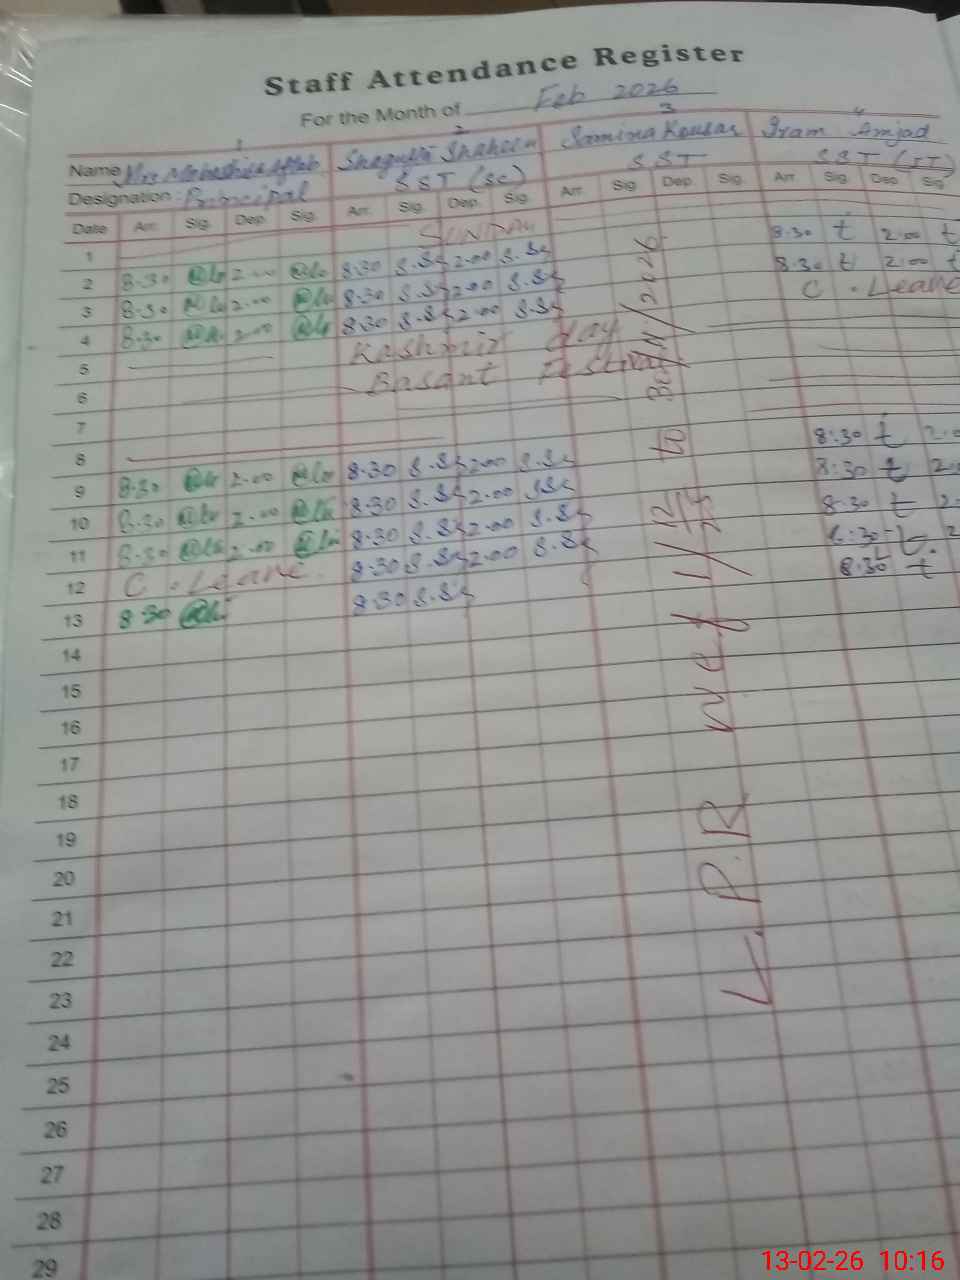 Staff Attendance Register
For the Month of Feb 2026
1 2 3 4
Name Mrs Shagufta Shaheen Samina Kousar Iram Amjad
Designation Principal SST (sc) SST SST (IT)
Date Arr. Sig. Dep. Sig. Arr. Sig. Dep. Sig. Arr. Sig. Dep. Sig. Arr. Sig. Dep. Sig
1 SUNDAY
2 8-30 2-00 8-30 S.S 2-00 S.S 8-30 t 2-00 t
3 8-30 2-00 8-30 S.S 2-00 S.S 8-30 t 2-00 t
4 8-30 2-00 8-30 S.S 2-00 S.S C. Leave
5 Kashmir day
6 Basant Festival
7
8
9 8-30 2-00 8-30 S.S 2-00 S.S 8:30 t 2-0
10 8-30 2-00 8-30 S.S 2-00 S.S 8:30 t 2-0
11 8-30 2-00 8-30 S.S 2-00 S.S 8-30 t 2-
12 C. Leave 8-30 S.S 2-00 S.S 2
13 8-30 8-30 S.S 8-30 t
14
15
16
17
18
19
20
21
22
23
24
25
26
27
28
29
L.P.R w.e.f 1/12/25 to
13-02-26 10:16